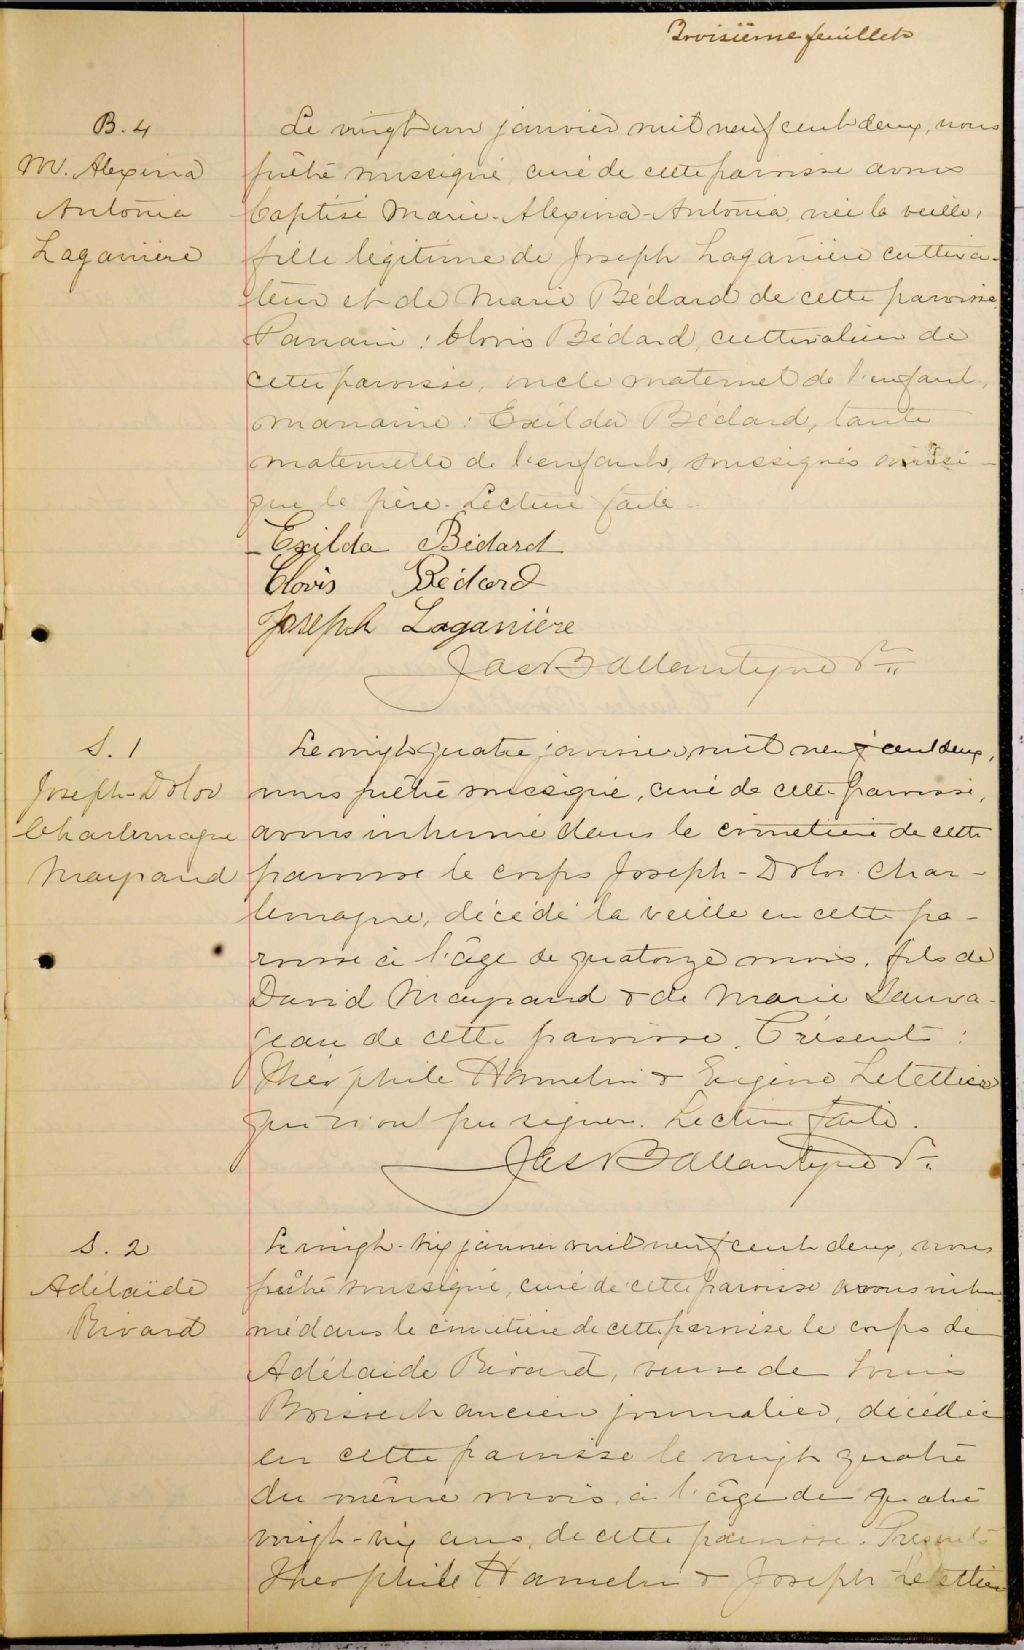 Troisième feuillet
B. 4
M. Alexina
Antonia
Laganière
Le vingt un janvier mil neuf cent deux, nous
prêtre soussigné, curé de cette paroisse avons
baptisé Marie-Alexina-Antonia, née la veille,
fille légitime de Joseph Laganière cultiva-
teur et de Marie Bédard de cette paroisse.
Parrain : Clovis Bédard, cultivateur de
cette paroisse, oncle maternel de l'enfant,
marraine : Exilda Bédard, tante
maternelle de l'enfant, soussignés ainsi
que le père. Lecture faite.
Exilda Bédard
Clovis Bédard
Joseph Laganière
Jas Ballantyne Ptre
S. 1
Joseph-Dolor
Charlemagne
Mayrand
Le vingt quatre janvier mil neuf cent deux,
nous prêtre soussigné, curé de cette paroisse,
avons inhumé dans le cimetière de cette
paroisse le corps Joseph-Dolor Char-
lemagne, décédé la veille en cette pa-
roisse à l'âge de quatorze mois, fils de
David Mayrand & de Marie Sauva-
geau de cette paroisse. Présents :
Théophile Hamelin & Eugène Letellier
qui n'ont pu signer. Lecture faite.
Jas Ballantyne Ptre
S. 2
Adélaïde
Rivard
Le vingt-six janvier mil neuf cent deux, nous
prêtre soussigné, curé de cette paroisse avons inhu-
mé dans le cimetière de cette paroisse le corps de
Adélaïde Rivard, veuve de Louis
ancien journalier, décédée
en cette paroisse le vingt quatre
du même mois, à l'âge de quatre
vingt-six ans, de cette paroisse. Présents
Théophile Hamelin & Joseph Letellier